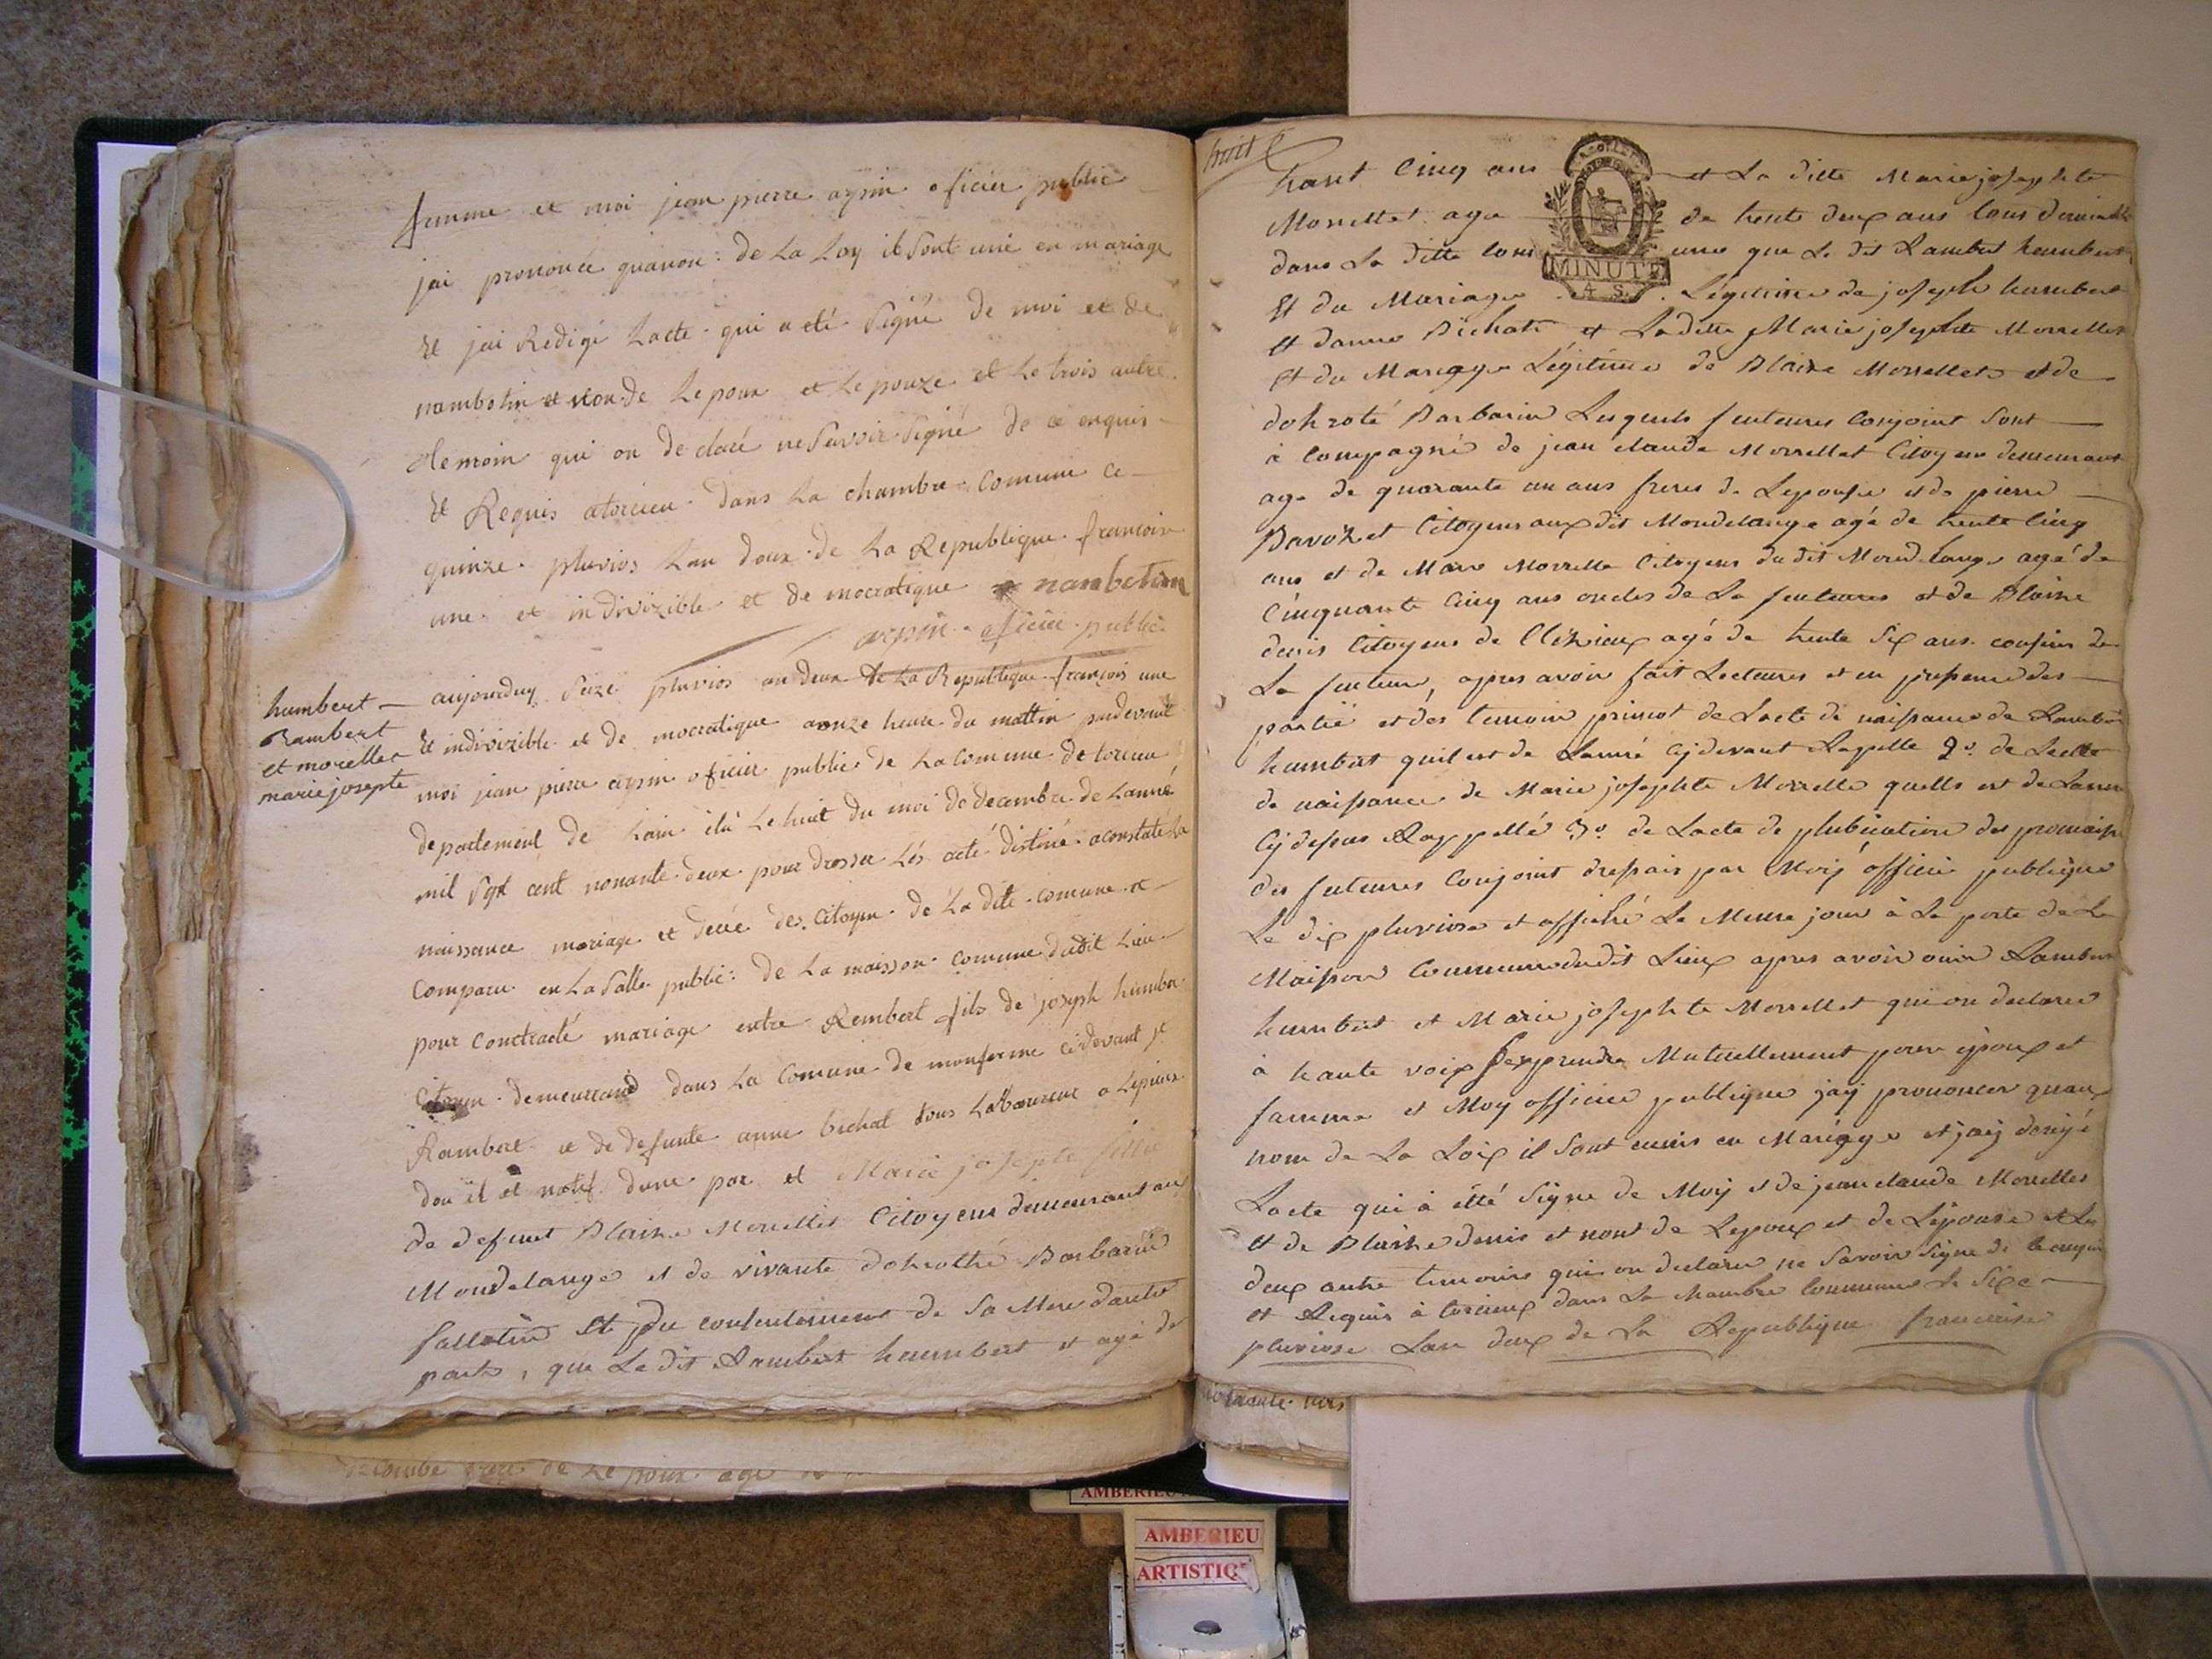 femme et moi jean pierre aynin oficier public
jai prononcé quanon de La Loy il sont unie en mariage
Et jai Redigé Lacte qui a eté Signé de moi et de
nambotin et non de Lepoux et Lepouze et Le trois autre
temoin qui on declaré ne Savoir Signé de ce enquis
Et Requis atorcieu dans La chambre Comune ce
quinze pluvios Lan deux de La Republique francoise
une et indivizible et de mocratique nambotin
aynin oficier public
humbert
Rambert
et morellet
marie josepte
aujourduy Seize pluvios an deux de La Republique françois une
Et indivizible et de mocratique a onze heure du mattin pardevant
moi jean pierre aynin oficier public de La Comune de torcieu
departement de Lain élu Le huit du moi de decembre de Lanné
mil Sept cent nonante deux pour dresser Lés acté distiné a constate La
naissance mariage et decé des Citoyen de La dite comune et
Comparu en La Salle public de La maisson Comune dudit Lieu
pour Contracté mariage entre Rembert fils de joseph humber
Citoyen demeurrand dans La Comune de monferme cidevant st
Rambert et de defunte anne bichat tous Laboureur a
dou il et natif dune par et Marie josepte fille
de defunt Blaise Morellet Citoyens demeurant au
Mondelange et de vivante dohrothé Barbarin
fallotin Et du consentement de Sa Mere dautre
parts, que Le dit Rambert humbert et agé de
huit
trant Cinq ans et La ditte Marie josephte
Morellet age de trente deux ans tous
dans La ditte Comune que Le dit Rambert humbert
MINUTE
4 S.
Et du Mariage Légitime de joseph humbert
Et danne Bichate et Laditte Marie josephte Morrellet
Et du Mariage Légitime de Blaise Morrellet et de
dohroté Barbarin Lesquels futeures Conjoint Sont
à Compagné de jean claude Morrellet Citoyens demeurant
age de quarante un ans freres de Lepouse et de pierre
Citoyens aux dit Mondelange agé de trente Cinq
ans et de Marc Morrelle Citoyens du dit Mondelange agé de
Cinquante Cinq ans oncles de La futeures et de Blaise
denis Citoyens de agé de trente Six ans cousins de
La futeure, apres avoir fait Lecteures et en presence des
partië et des temoin primot de Lacte de naissance de Rambert
humbert quil est de Lanné Cydevant Rapelle 2º. de Lacte
de naissance de Marie josephte Morrelle quelle est de Lanné
Cydessus Rappellé 3º. de Lacte de plubication des promaisse
des futeures Conjoint dressais par Moy officie publique
Le dix pluviose et affiché Le Meme jour à La porte de La
Maison Commune dudit Lieux apres avoir ouir Rambert
humbert et Marie josephte Morrellet qui on declarer
à haute voix Sexprendre Mutuellement pour époux et
famme et Moy officier publique jay prononcer quau
nom de La Loix il Sont eunis en Mariage et jay
Lacte qui à étté Signe de Moy et de jean claude Morrelles
Et de Blaise denis et nont de Lepoux et de Lépouse et Les
deux autre temoins qui on declarer ne Savoir Signe de
et Requis à torcieux dans La Commune Le
pluviose Lan deux de La Republique francoise
AMBERIEU
AMBERIEU
ARTISTIQ